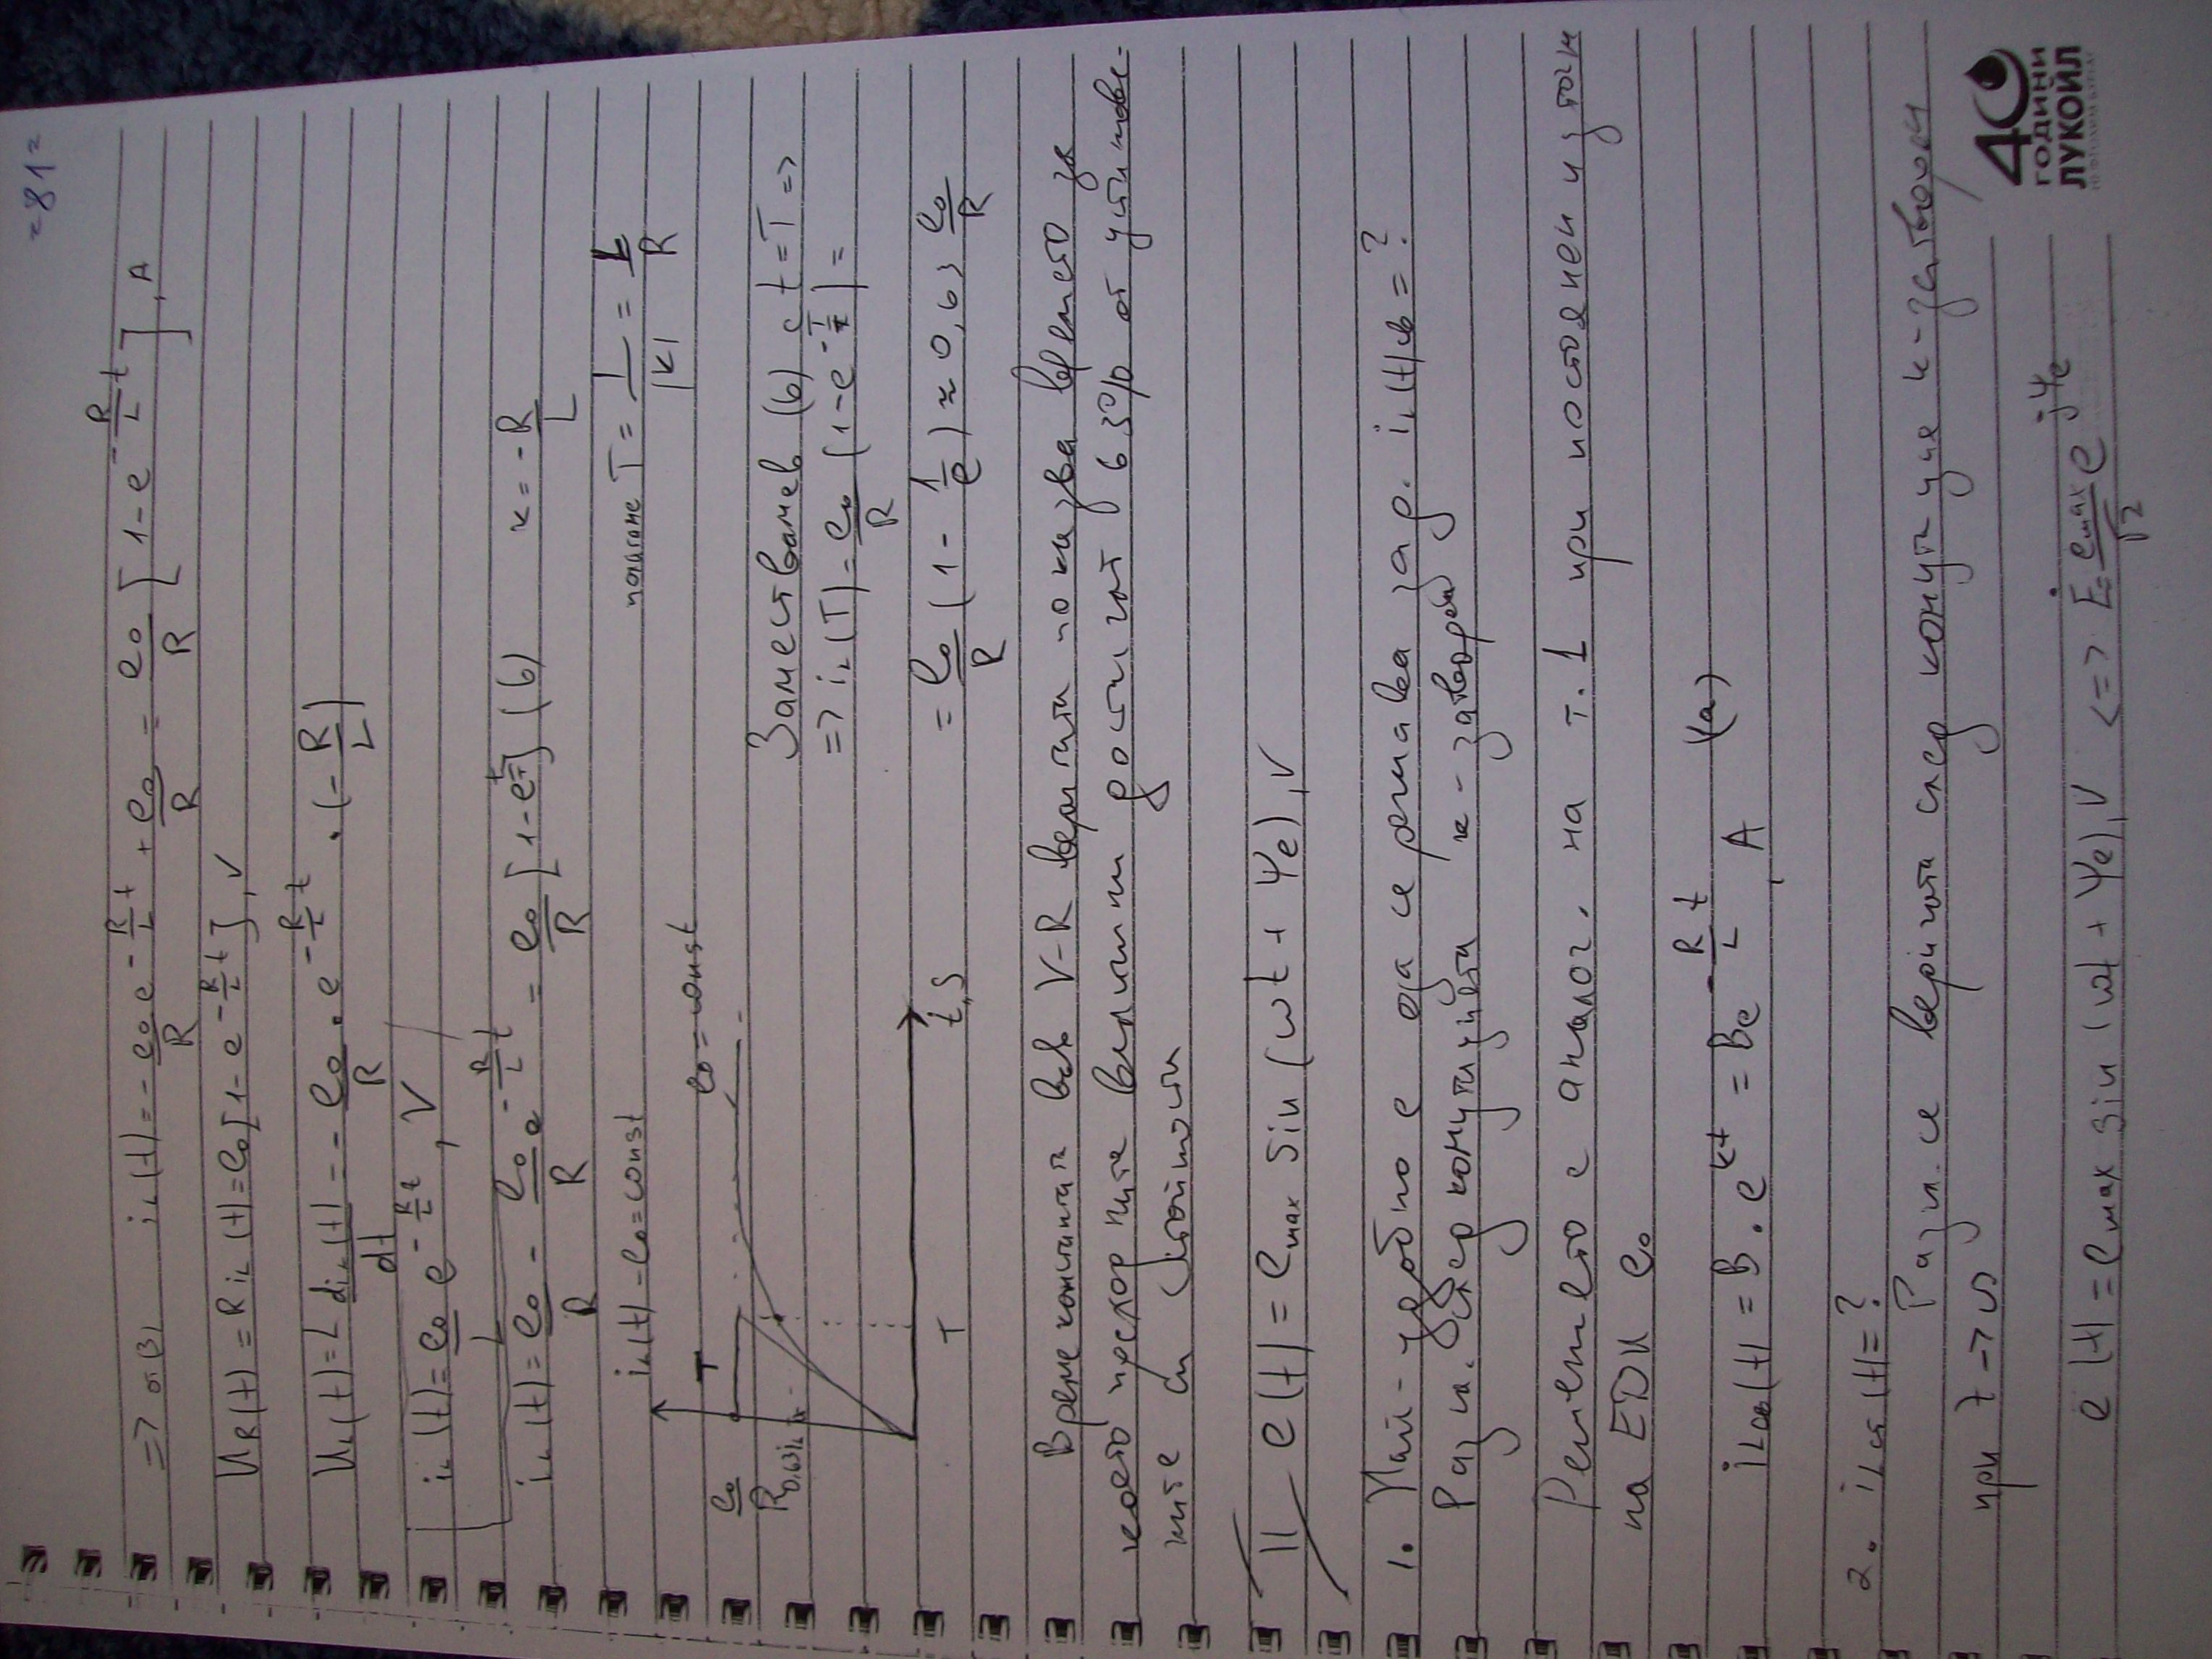 =81=
=> от в) i_L(t) = - e₀/R e^(-R/L t) + e₀/R = e₀/R [1-e^(-R/L t)], A
U_R(t) = R i_L(t) = e₀[1-e^(-R/L t)], V
U_L(t) = L di_L(t)/dt = - e₀/R . e^(-R/L t) . (-R/L)
i_L(t) = e₀ e^(-R/L t), V
i_L(t) = e₀/R - e₀/R e^(-R/L t) = e₀/R [1-e^(-t/T)] (б) к = -R/L
полагаме T = 1/|к| = L/R
i_L(t) - e₀ = const
e₀ = const
T
e₀/R
0,63 i_L
T
t, s
Заместваме в (б) с t = T =>
=> i_L(T) = e₀/R (1-e^(-T/T)) =
= e₀/R (1 - 1/e) ≈ 0,63 e₀/R
Времеконстантата във V-R веригата показва времето за
което преходните величини достигат 63% от установе-
ните си стойности
II e(t) = e_max sin (ωt + Ψe), V
1. Най-удобно е да се решава за р. i_L(t)св = ?
Разгл. след комутацията к - затворен
Решението е аналог. на т. 1 при постоянен източн
на ЕДН e₀
i_Lсв(t) = B . e^(кt) = Be^(-R/L t), A (а)
2. i_Lуст(t) = ?
Разгл. се веригата след комутация к-затворен
при t -> ∞
e(t) = e_max sin (ωt + Ψe), V <=> Ė = e_max/√2 e^(jΨe)
40
ГОДИНИ
ЛУКОЙЛ